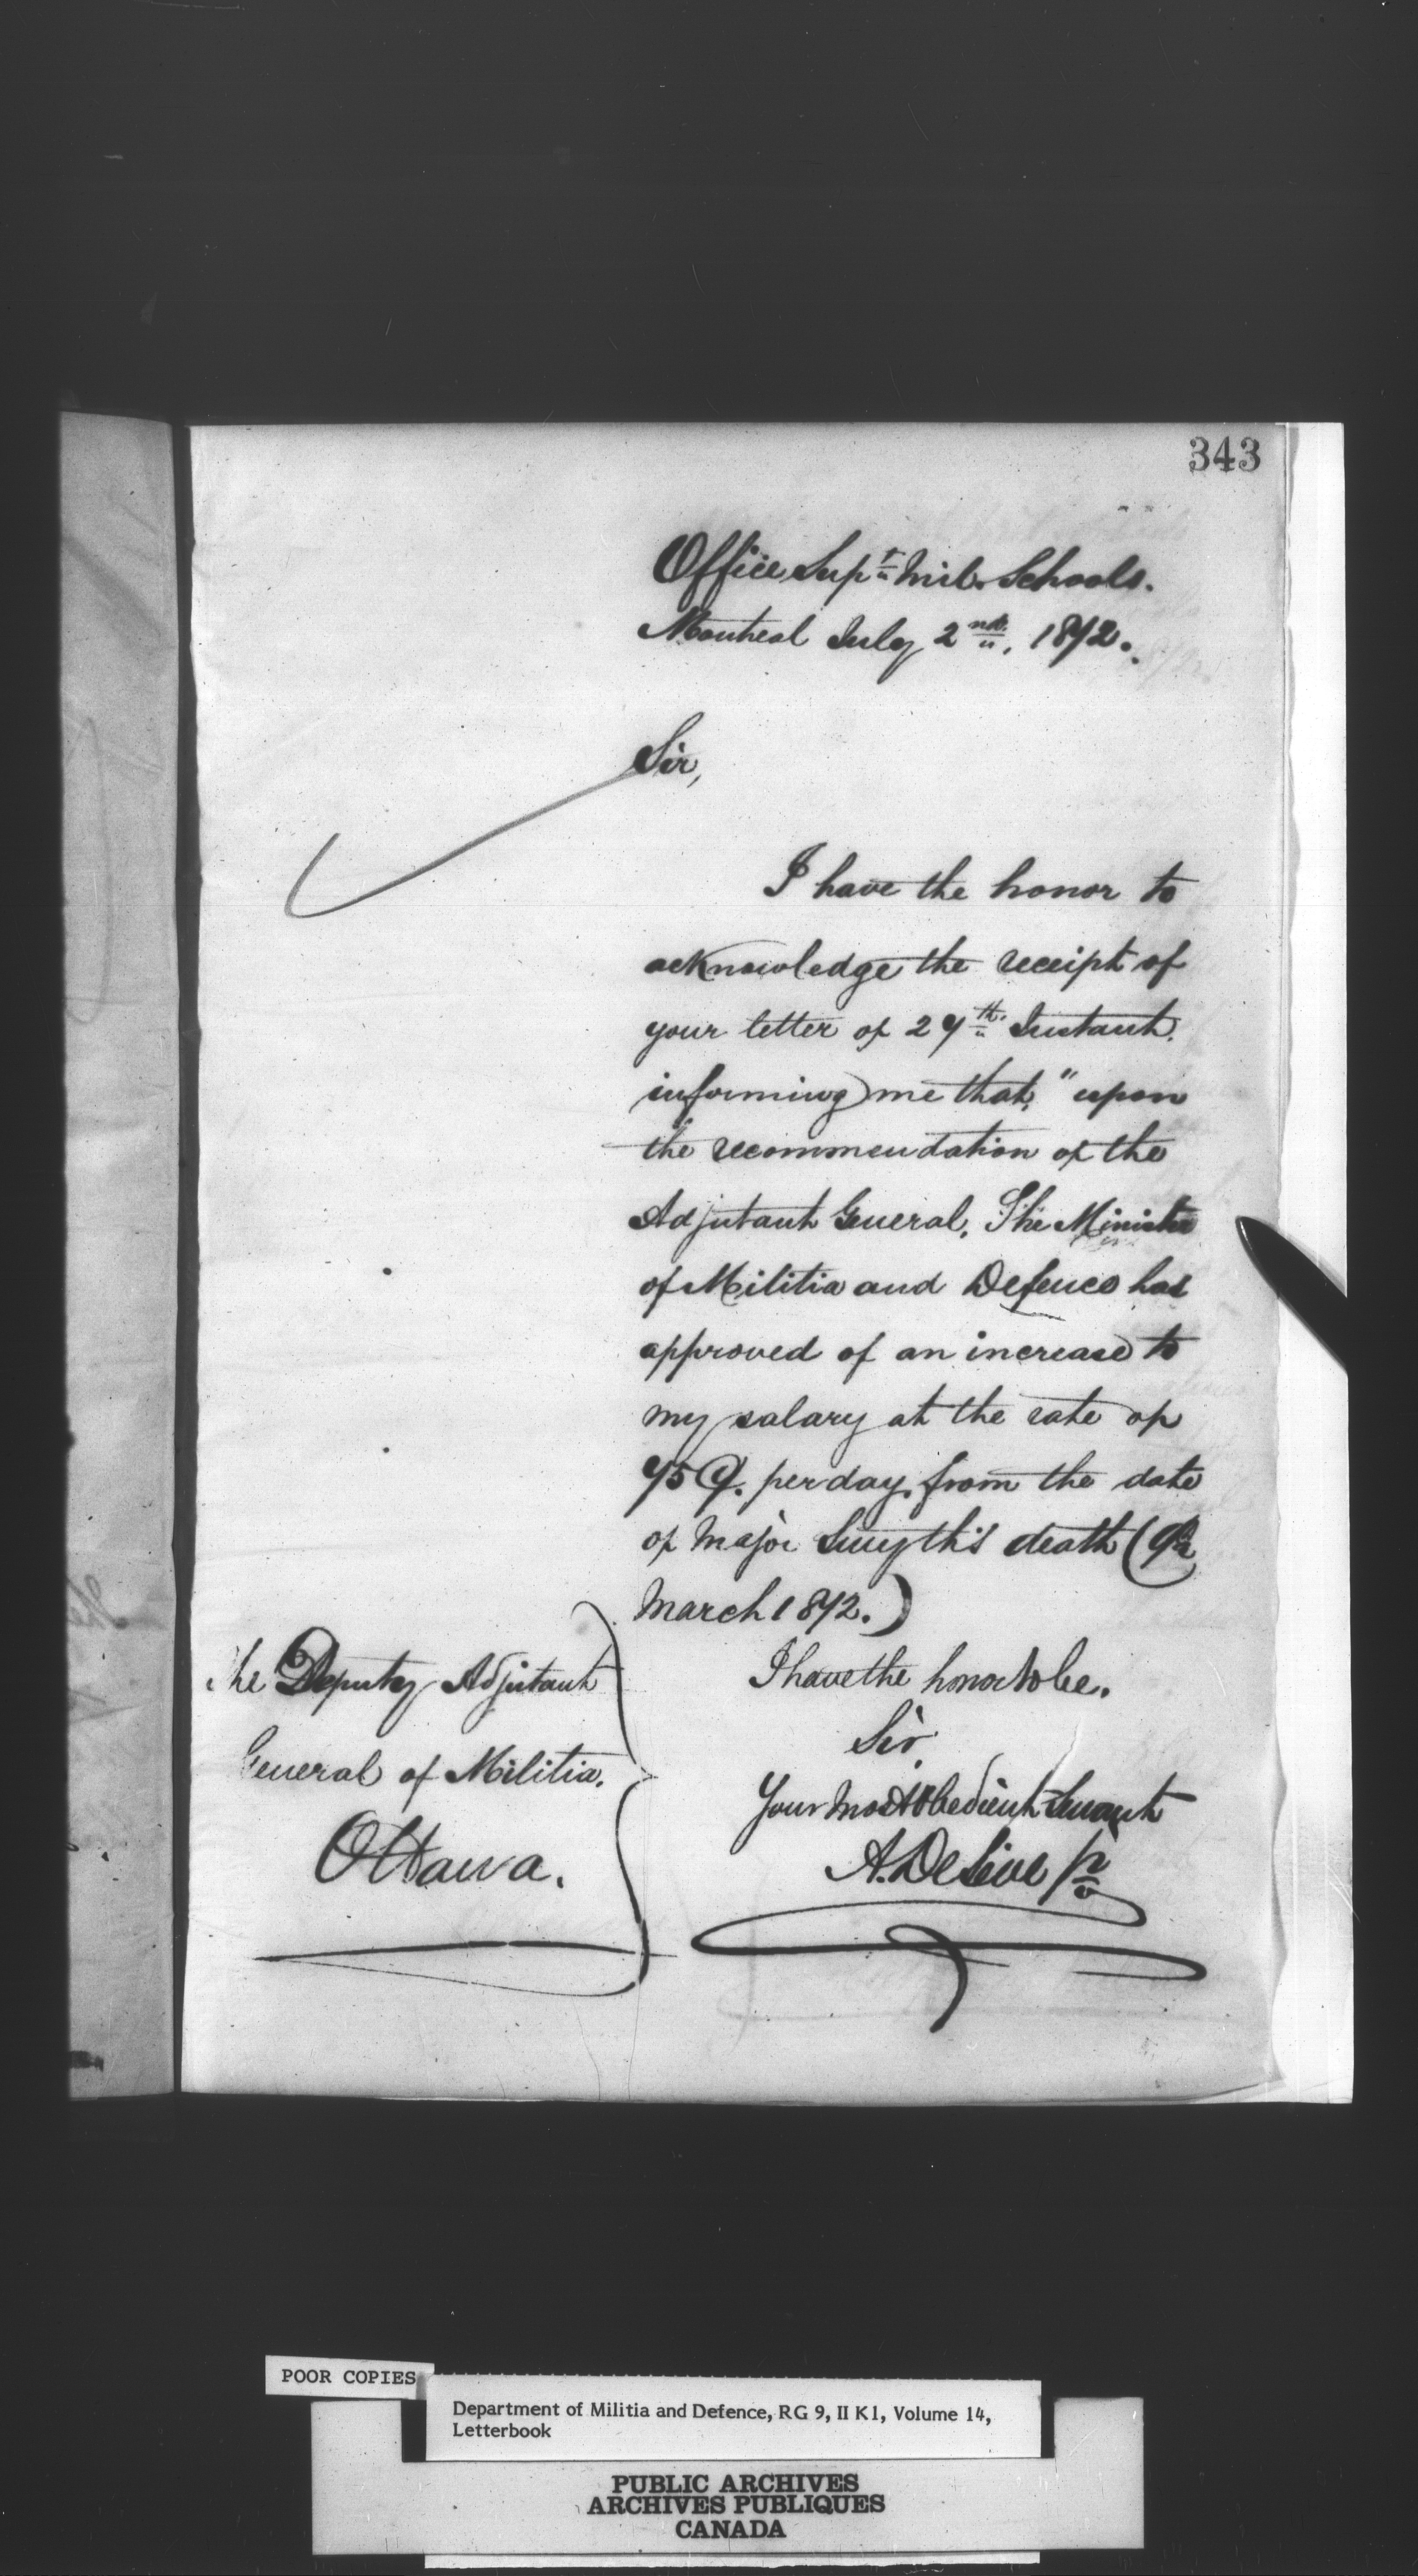 343
Office Supt Mil. Schools.
Montreal July 2nd, 1872.
Sir,
I have the honor to
acknowledge the receipt of
your letter of 27th Instant.
informing me that, "upon
the recommendation of the
Adjutant General, The Minister
of Militia and Defence has
approved of an increase to
my salary at the rate of
75 ¢. per day, from the date
of Major Smyth's death (9th
March 1872.)
I have the honor to be.
Sir
Your Most Obedient Servant
A. De
The Deputy Adjutant
General of Militia.
Ottawa.
POOR COPIES
Department of Militia and Defence, RG 9, II K1, Volume 14,
Letterbook
PUBLIC ARCHIVES
ARCHIVES PUBLIQUES
CANADA